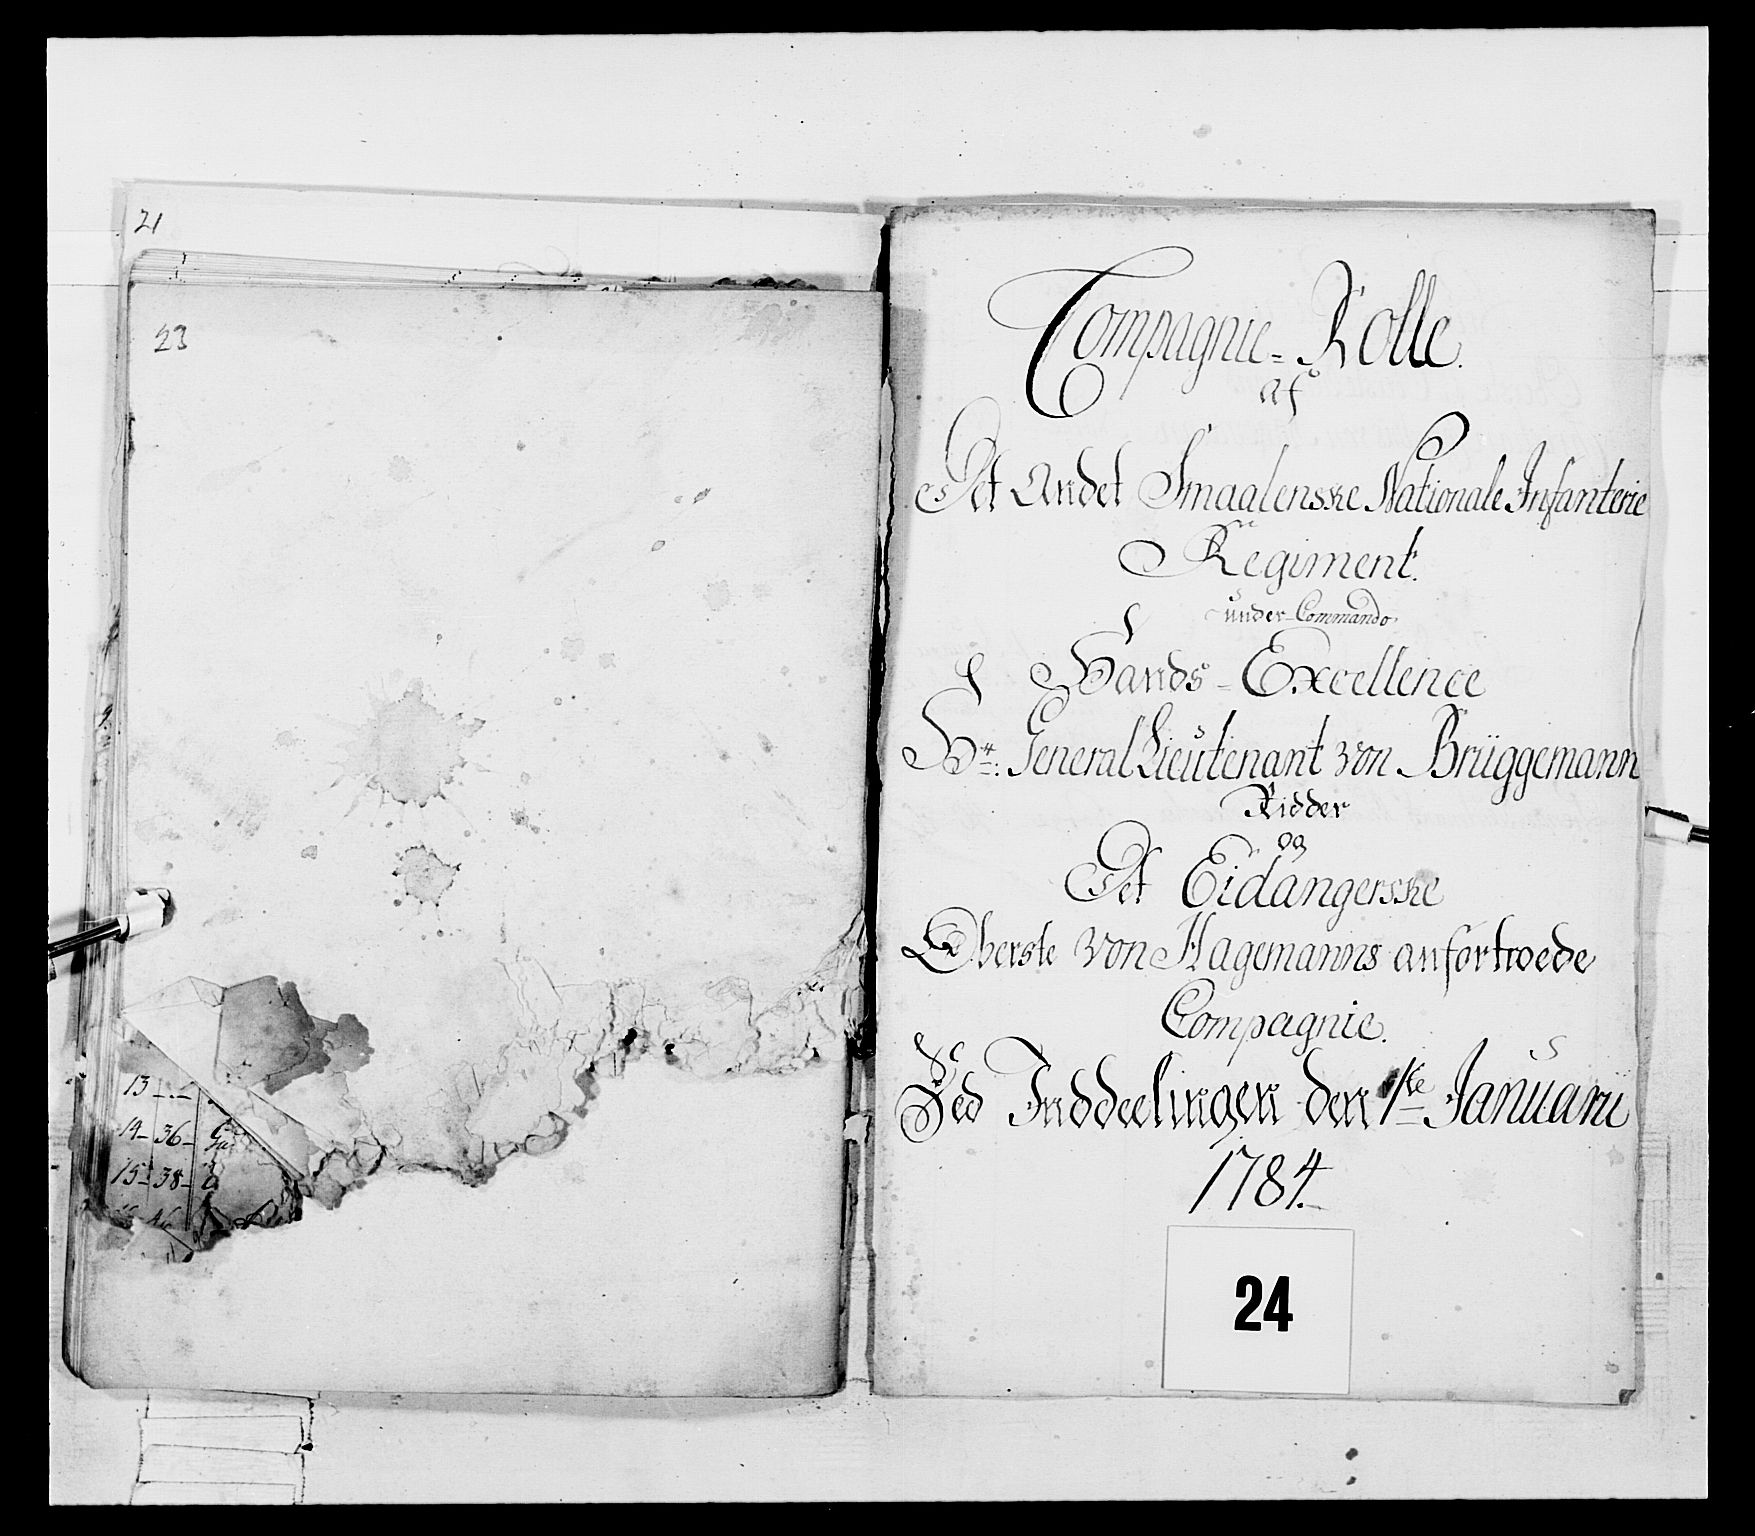 21
23
13
14 36
15 38
16
Compagnie=Rolle.
af
Det Andet Smaalenske Nationale Infanterie
Regiment.
under Commando
Hands=Excellence
Hr: General Lieutenant von Brüggemann
Ridder
og
Det Eidangerske
Oberste von Hagemanns anfortroede
Compagnie.
Ved Inddeelingen den 1ste Januarii
1784.
24